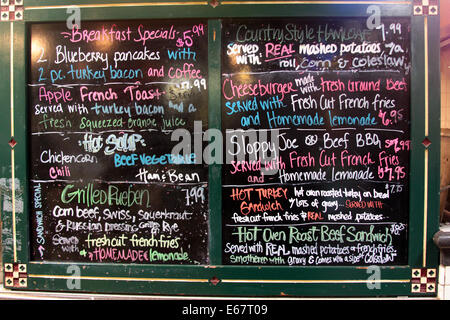 Breakfast Specials $5.99
2 Blueberry pancakes with
2 pc turkey bacon and coffee
Apple French Toast
Served with turkey bacon and a
fresh squeezed orange juice
Hot Soup
Chicken corn
Beef Vegetable
Chili
Ham & Bean
Sandwich Special
Grilled Rueben 7.99
Corn beef, Swiss, Sauerkraut
& Russian dressing on Grilled Rye
Served with
fresh cut french fries
& Homemade lemonade
Country Style Hamloaf 7.99
Served with REAL mashed potatoes
roll, corn & coleslaw
Cheeseburger made with Fresh Ground Beef
Served with Fresh Cut French fries
and Homemade lemonade
Sloppy Joe Beef BBQ
Served with Fresh Cut French Fries
and Homemade Lemonade
Hot Turkey Sandwich
hot oven roasted turkey on bread
& lots of gravy
Served with
fresh cut french fries & REAL mashed potatoes
Hot Oven Roast Beef Sandwich
Served with REAL mashed potatoes or french fries
Smothered with gravy & comes with a side of Coleslaw
alamy
alamy
Image ID: E67T09
www.alamy.com